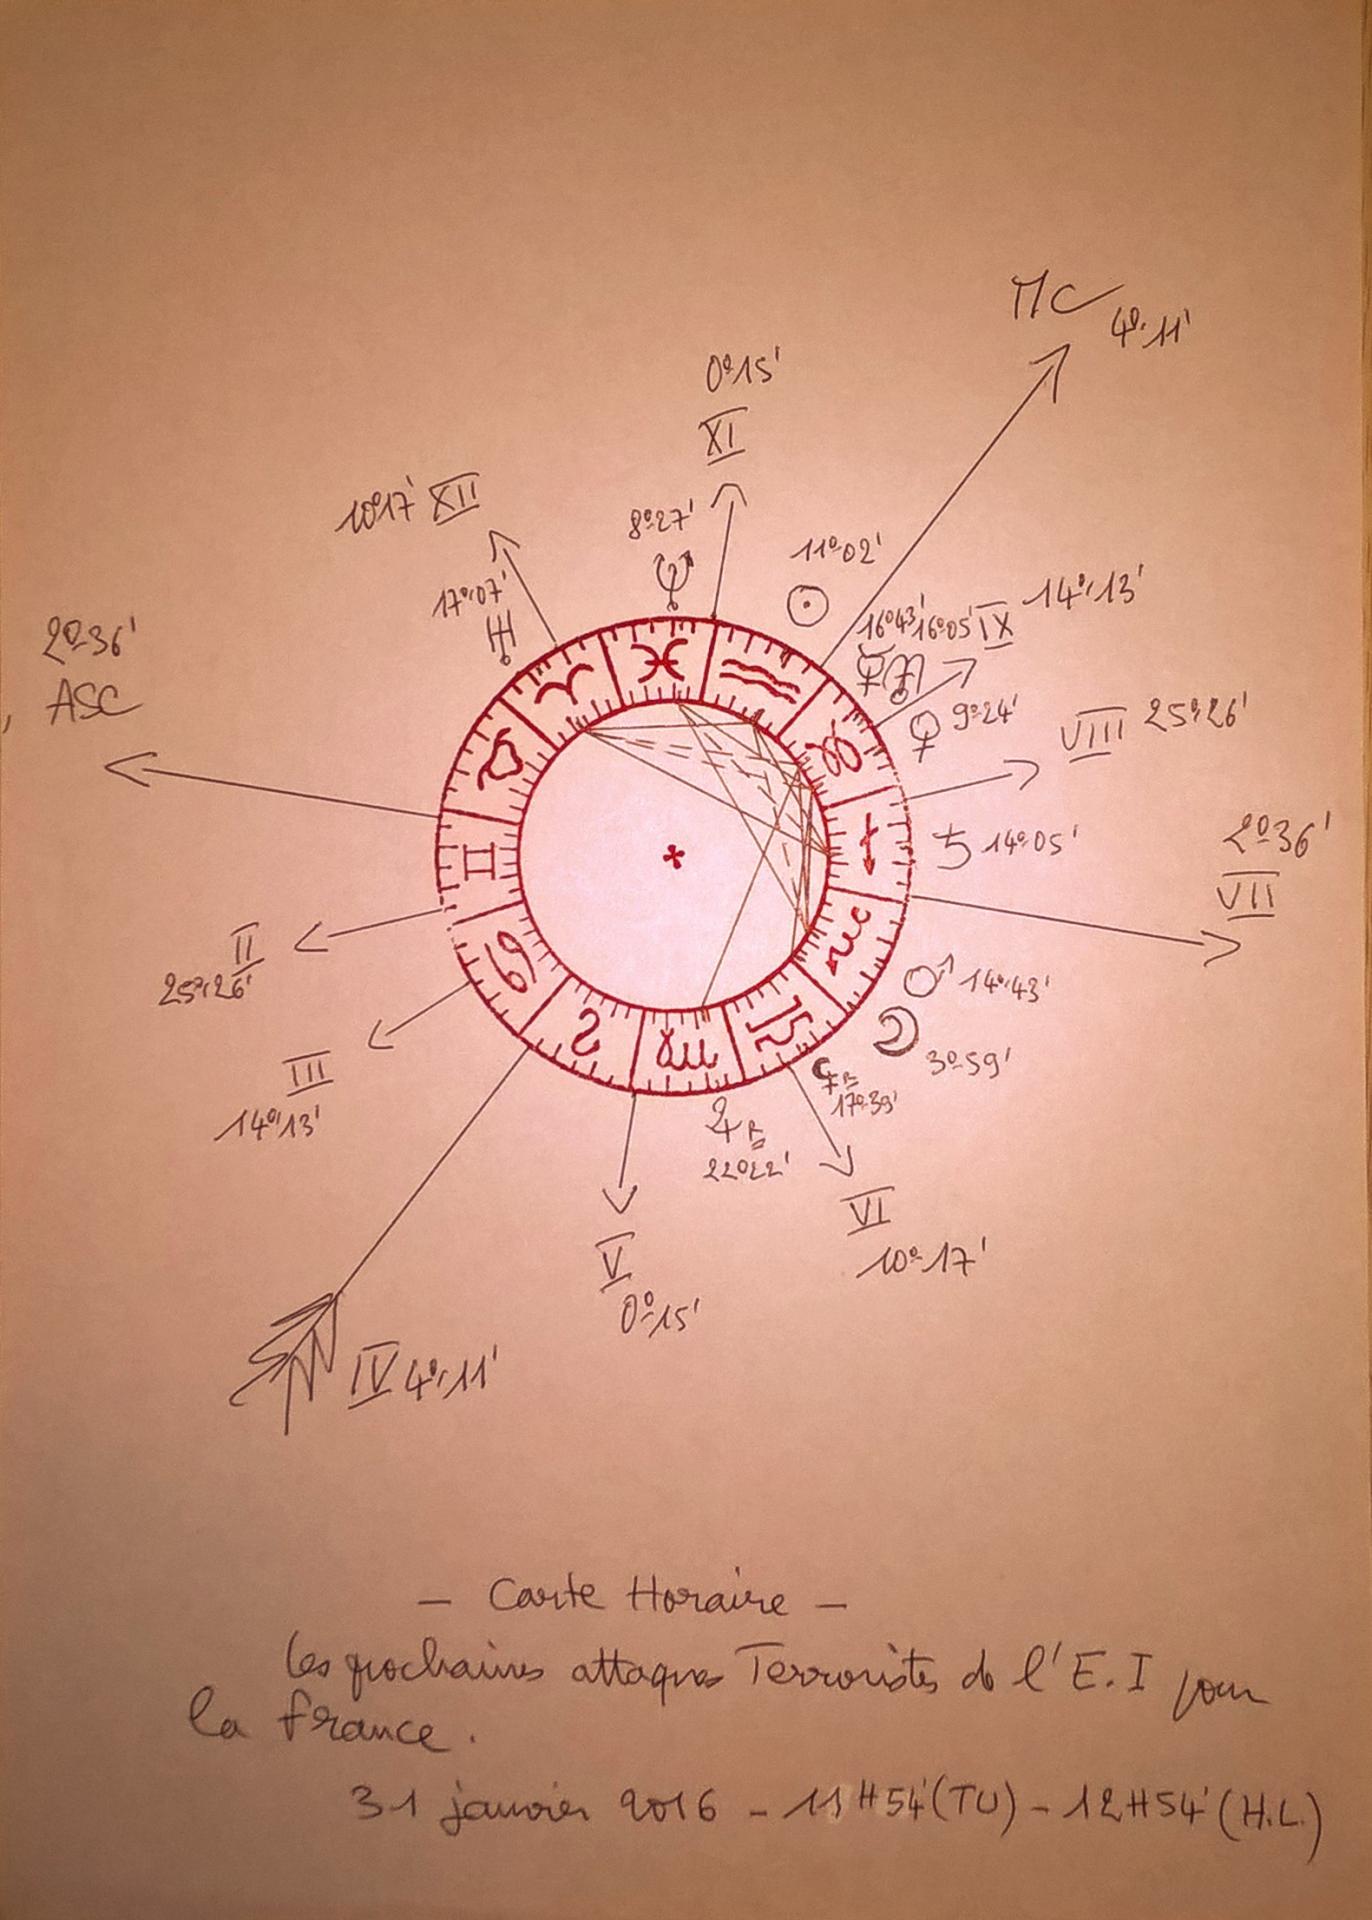 MC 4°11'
0°15'
XI
10°17' XII
8°27'
11°02'
17°07'
16°43' 16°05' IX 14°13'
2°36'
ASC
9°24'
VIII 25°26'
14°05'
2°36'
VII
II
25°26'
14°43'
3°59'
III
14°13'
17°39'
22°22'
VI
10°17'
V
0°15'
IV 4°11'
- Carte Horaire -
Les prochaines attaques Terroristes de l'E.I pour
la France.
31 janvier 2016 - 11H54'(TU) - 12H54'(H.L.)